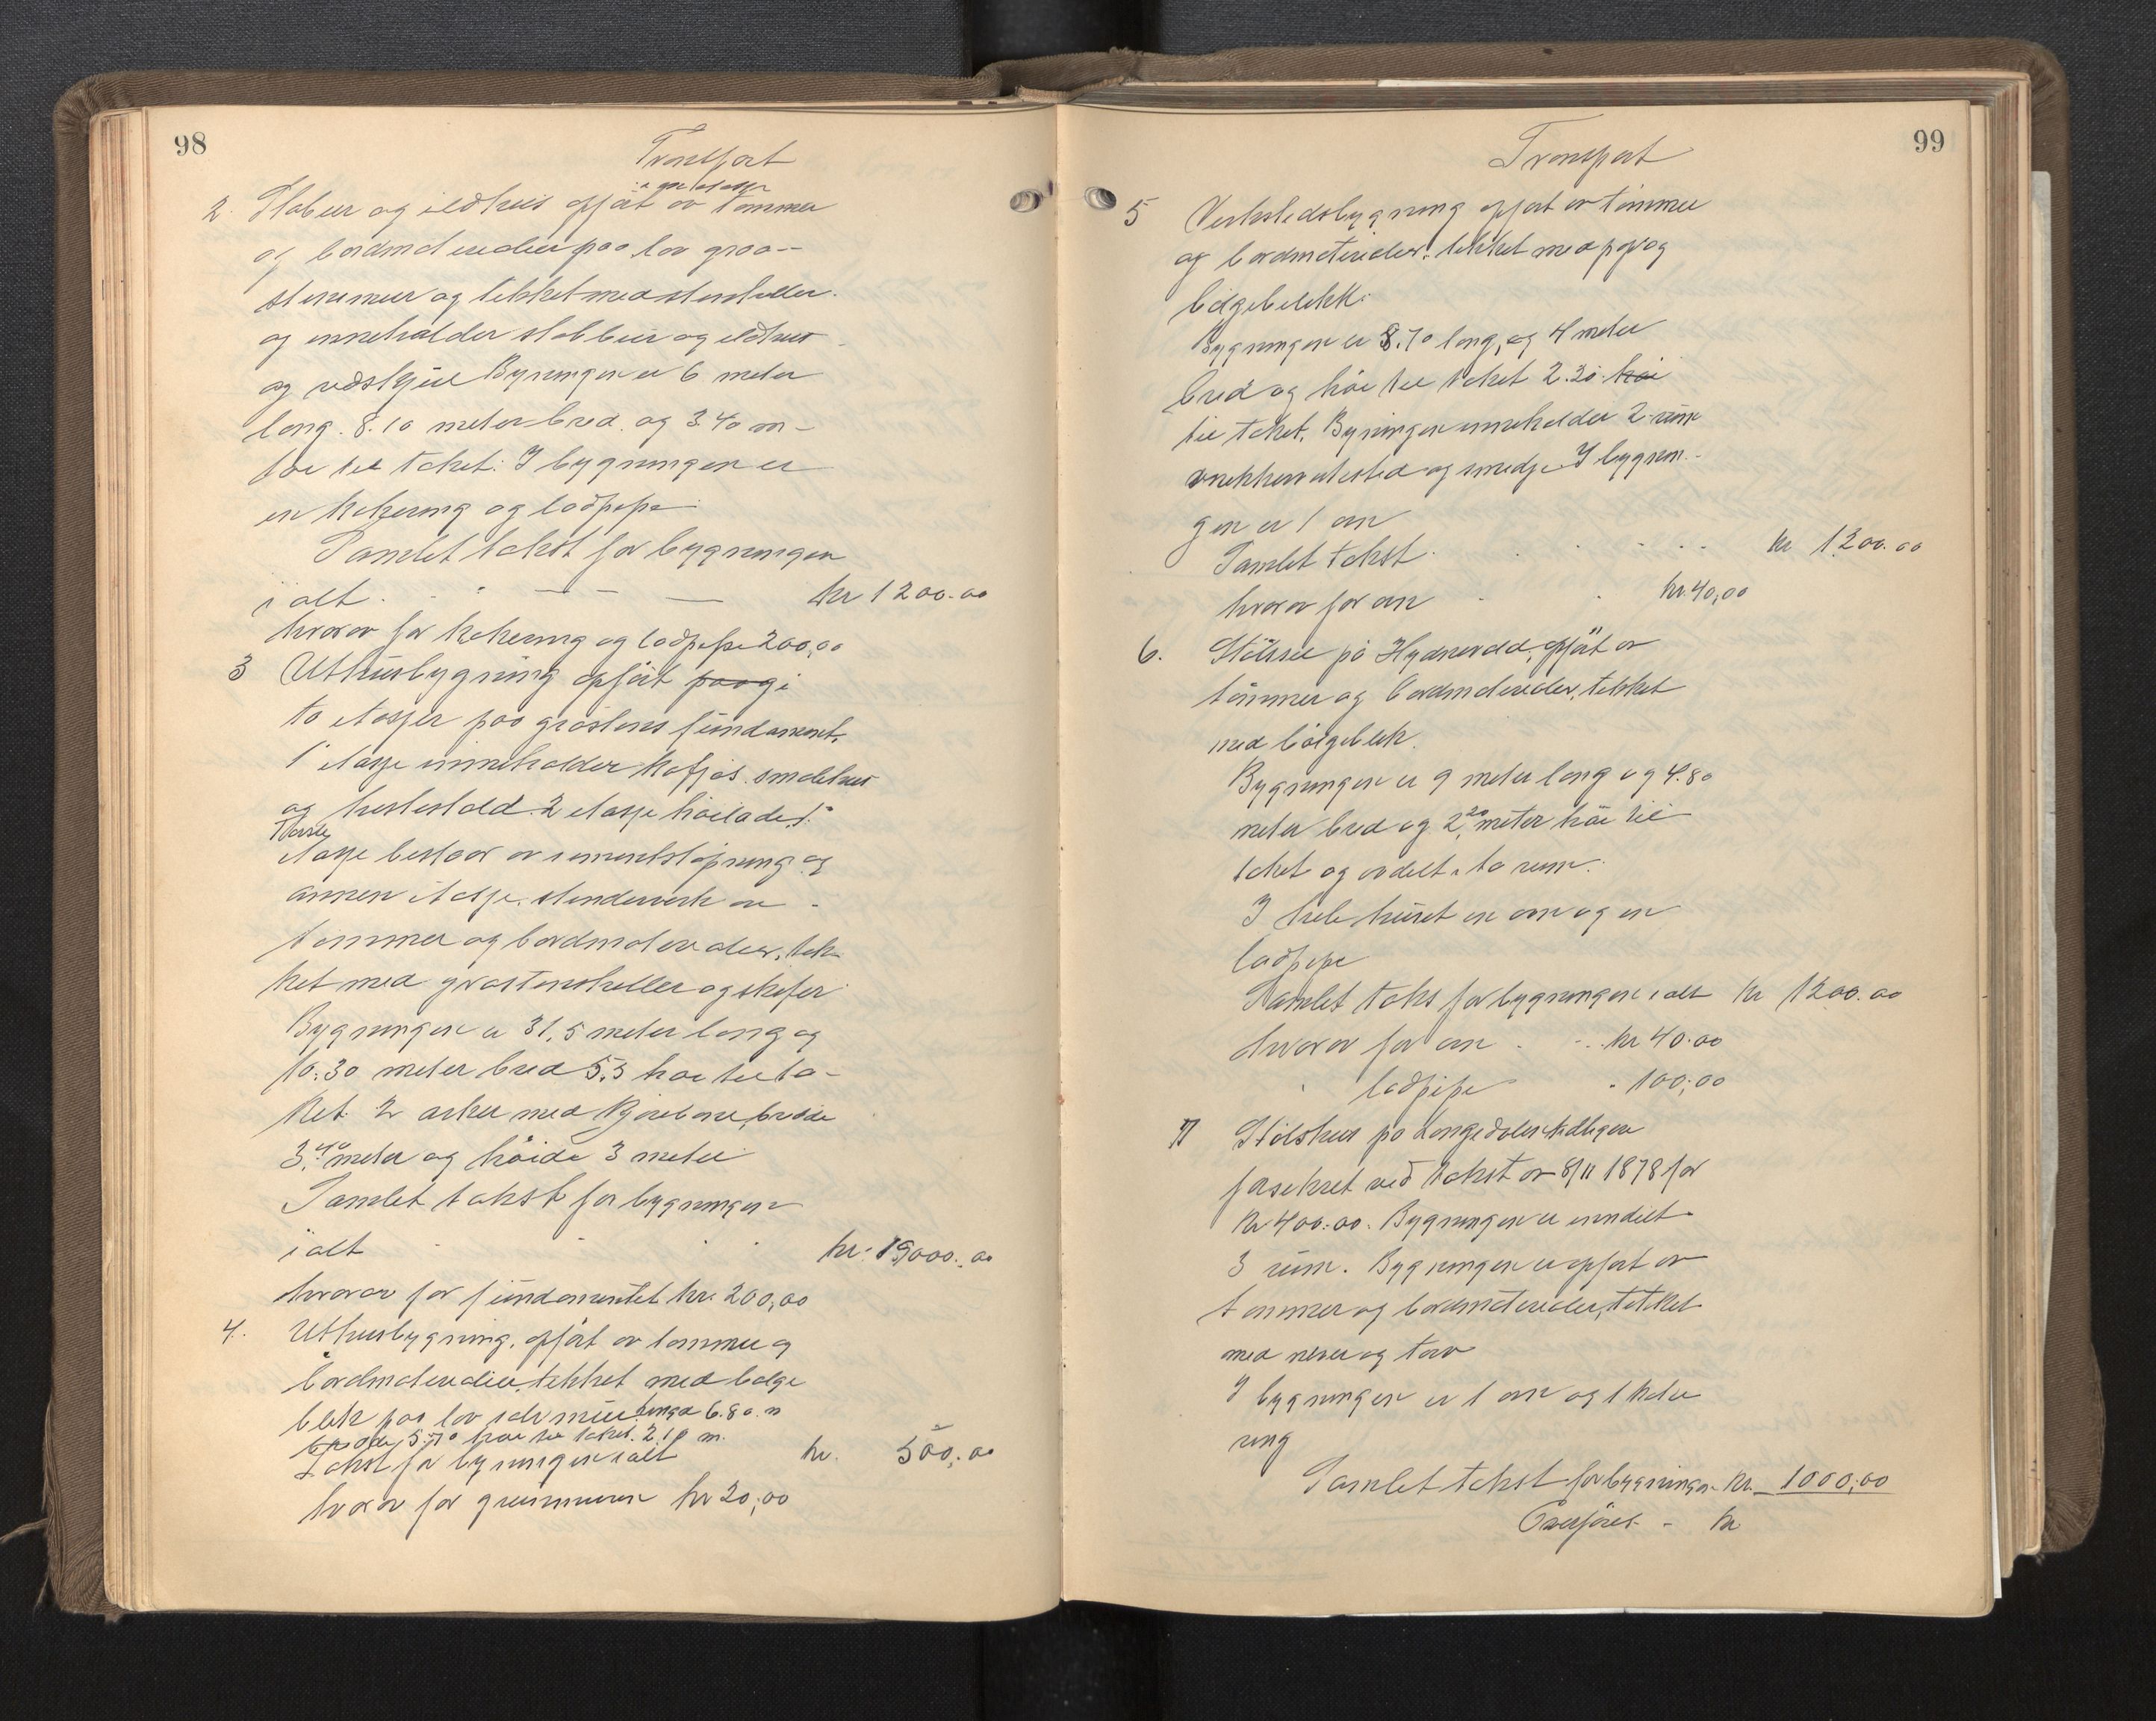 98
Transport
i en etasje
2. Stabur og ildhus opført av tømmer
og bordmaterialer paa lav graa-
stensmur og tekket med stenheller.
og inneholder stabbur og ildhus
og vedskjul Bygningen er 6 meter
lang. 8.10 meter bred. og 3.40 m
høi til taket. I bygningen er
en kokering og ladpipe
Samlet takst for bygningen
i alt kr 1200.00
hvorav for kokering og ladpipe 200.00
3 Uthusbygning opført paa g i
to etasjer paa gråstens fundament.
1 etasje inneholder kufjøs. smalehus
og hestestald 2 etasje høilade. 1.
første
etasje bestaar av sementstøpning og
annen etasje. stenderverk av
tømmer og bordmaterialer, tek-
ket med gråstensheller og skifer
Bygningen er 31.5 meter lang og
10.30 meter bred 5.5 høi til ta-
ket. 2 arker med kjørebane, bredde
3.40 meter og høide 3 meter
Samlet takst for bygningen
i alt kr: 19000.00
hvorav for fundamentet kr. 200,00
4. Uthusbygning. opført av tømmer og
bordmaterialer, tekket med bølge
blek paa lav mur. Lengde 6.80 m
bredde 5.70 høi til taket. 2.10 m.
Takst for bygningen i alt kr. 500.00
hvorav for grunnmuren kr 20,00
99
Transport
5 Verkstedsbygning opført av tømmer
og bordmaterialer. tekket med papp og
bølgeblekk.
Bygningen er 8.70 lang, og 4 meter
bred og høi til taket 2.30. høi
til taket. Bygningen inneholder 2 rum
snekkerverksted og smedje I bygnin-
gen er 1 ovn
Samlet takst kr 1200.00
hvorav for ovn kr. 40,00
6. Stølssel på opført av
tømmer og bordmaterialer, tekket
med bølgeblek.
Bygningen er 9 meter lang og 4.80
meter bred og 2.20 meter høi til
taket og avdelt i to rum.
I sele huset en ovn og en
ladpipe
Samlet takst for bygningen i alt kr 1200.00
hvorav for ovn kr 40.00
" ladpipe " 100,00
7 Stølshus på Langedalen tidligere
forsikret ved takst av 8/11 1878 for
kr 400.00. Bygningen er inndelt
3 rum. Bygningen er opført av
tømmer og bordmaterialer, tekket
med never og torv
I bygningen er 1 ovn og 1 koke
ring
Samlet takst for bygningen kr. 1000,00
Overføres - kr